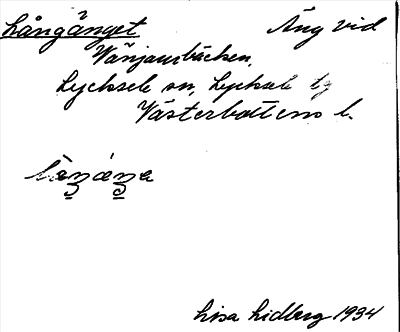 Långänget Äng vid
Vänjaurbäcken,
Lycksele sn, Lycksele lg
Västerbottens l.
Lisa Lidberg 1934